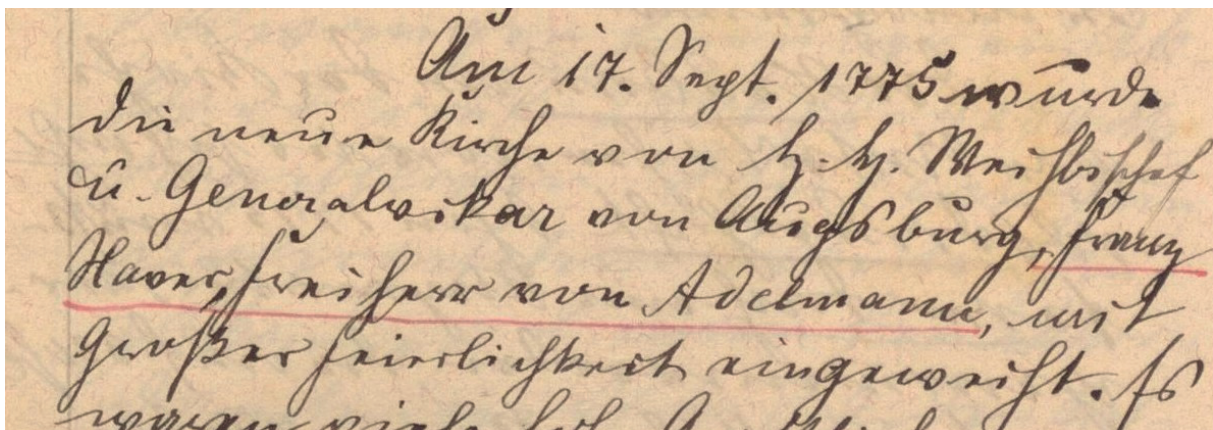 Am 17. Sept. 1775 wurde
die neue Kirche von H. H. Weihbischof
u. Generalvikar von Augsburg, Franz
Xaver, Freiherr von Adelmann, mit
großer Feierlichkeit eingeweiht. Es
waren viele